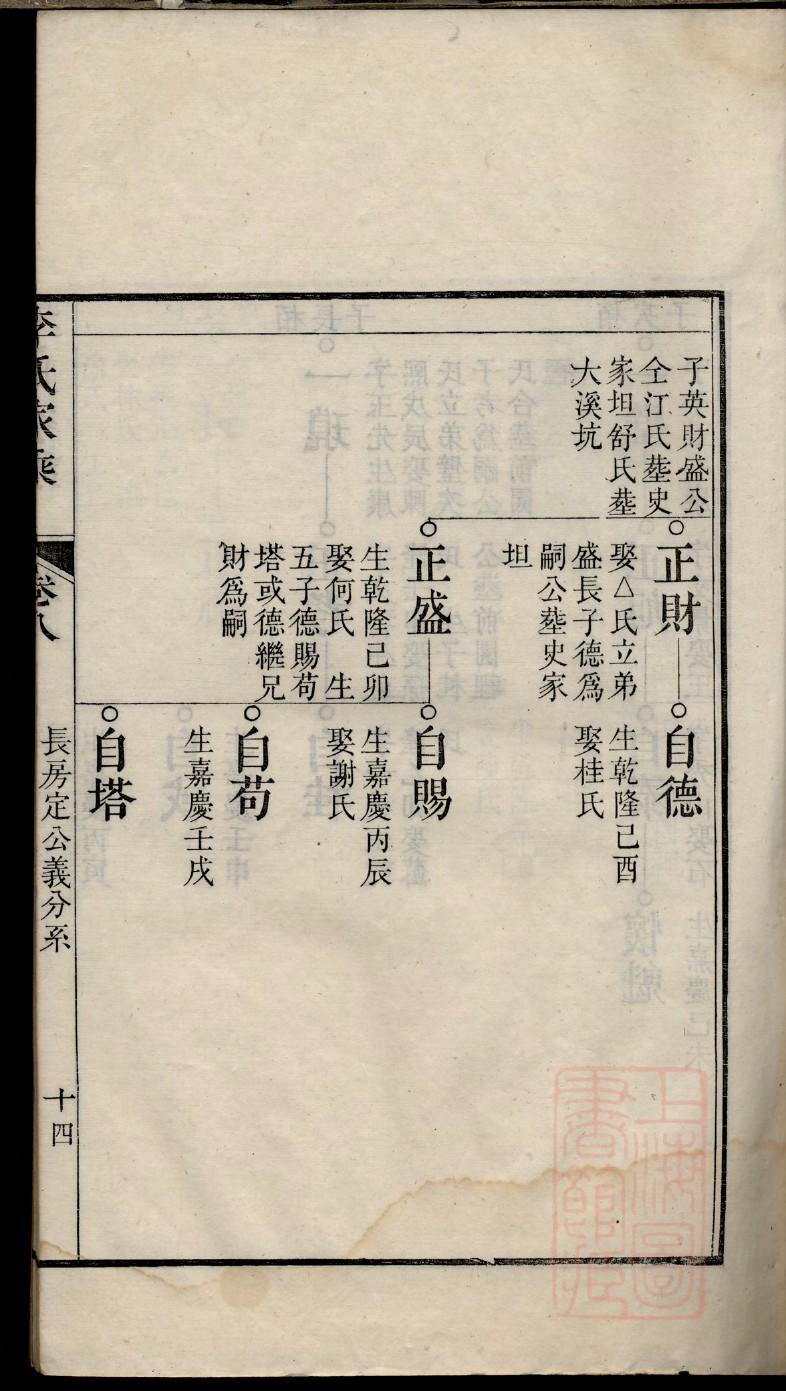 子英財盛公
仝江氏塟史
家坦舒氏塟
大溪坑
正財
娶△氏立弟
盛長子德爲
嗣公塟史家
坦
自德
生乾隆己酉
娶桂氏
正盛
生乾隆己卯
娶何氏 生
五子德賜苟
塔或德繼兄
財爲嗣
自賜
生嘉慶丙辰
娶謝氏
自苟
生嘉慶壬戌
自塔
李氏家乘
卷八
長房定公義分系
十四
上海圖
書館藏